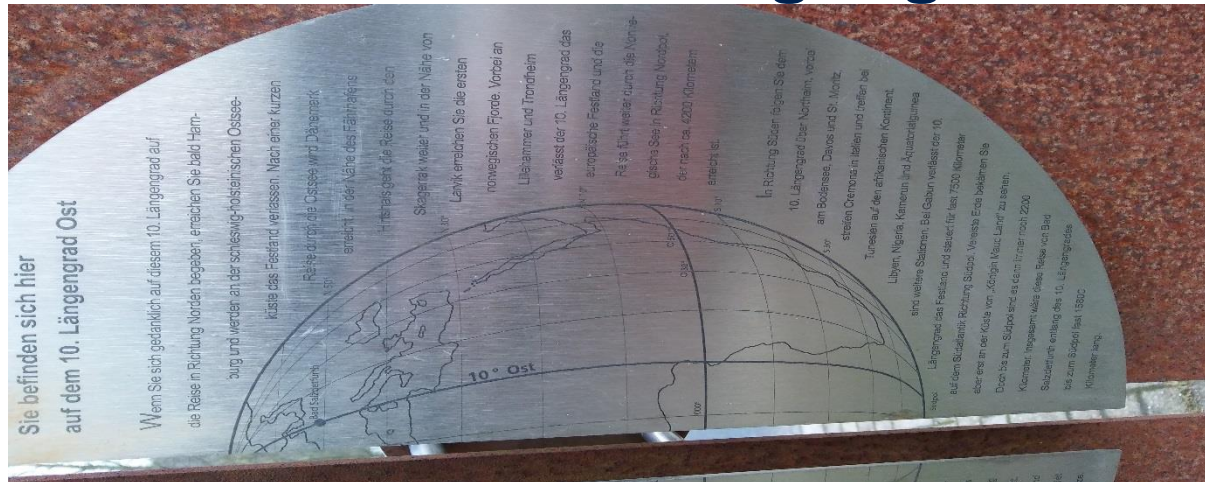 Sie befinden sich hier
auf dem 10. Längengrad Ost
Wenn Sie sich gedanklich auf diesem 10. Längengrad auf
die Reise in Richtung Norden begeben, erreichen Sie bald Ham-
burg und werden an der schleswig-holsteinischen Ostsee-
küste das Festland verlassen. Nach einer kurzen
Reise durch die Ostsee wird Dänemark
erreicht. In der Nähe des Fährhafens
Hirtshals geht die Reise durch den
Skagerrak weiter und in der Nähe von
Larvik erreichen Sie die ersten
norwegischen Fjorde. Vorbei an
Lillehammer und Trondheim
verlässt der 10. Längengrad das
europäische Festland und die
Reise führt weiter durch die Norwe-
gische See in Richtung Nordpol,
der nach ca. 4200 Kilometern
erreicht ist.
In Richtung Süden folgen Sie dem
10. Längengrad über Northeim, vorbei
am Bodensee, Davos und St. Moritz,
streifen Cremona in Italien und treffen bei
Tunesien auf den afrikanischen Kontinent.
Libyen, Nigeria, Kamerun und Äquatorialguinea
sind weitere Stationen. Bei Gabun verlässt der 10.
Längengrad das Festland und steuert für fast 7500 Kilometer
auf dem Südatlantik Richtung Südpol. Vereiste Erde bekämen Sie
aber erst an der Küste von „Königin Maud Land" zu sehen.
Doch bis zum Südpol sind es dann immer noch 2200
Kilometer. Insgesamt wäre diese Reise von Bad
Salzdetfurth entlang des 10. Längengrades
bis zum Südpol fast 15800
Kilometer lang.
Bad Salzdetfurth
10° Ost
Südpol